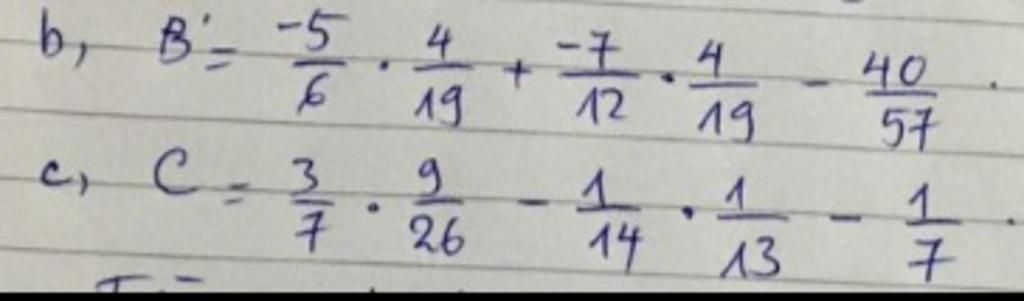 b, B = -5/6 . 4/19 + -7/12 . 4/19 - 40/57 .
c, C = 3/7 . 9/26 - 1/14 . 1/13 - 1/7 .